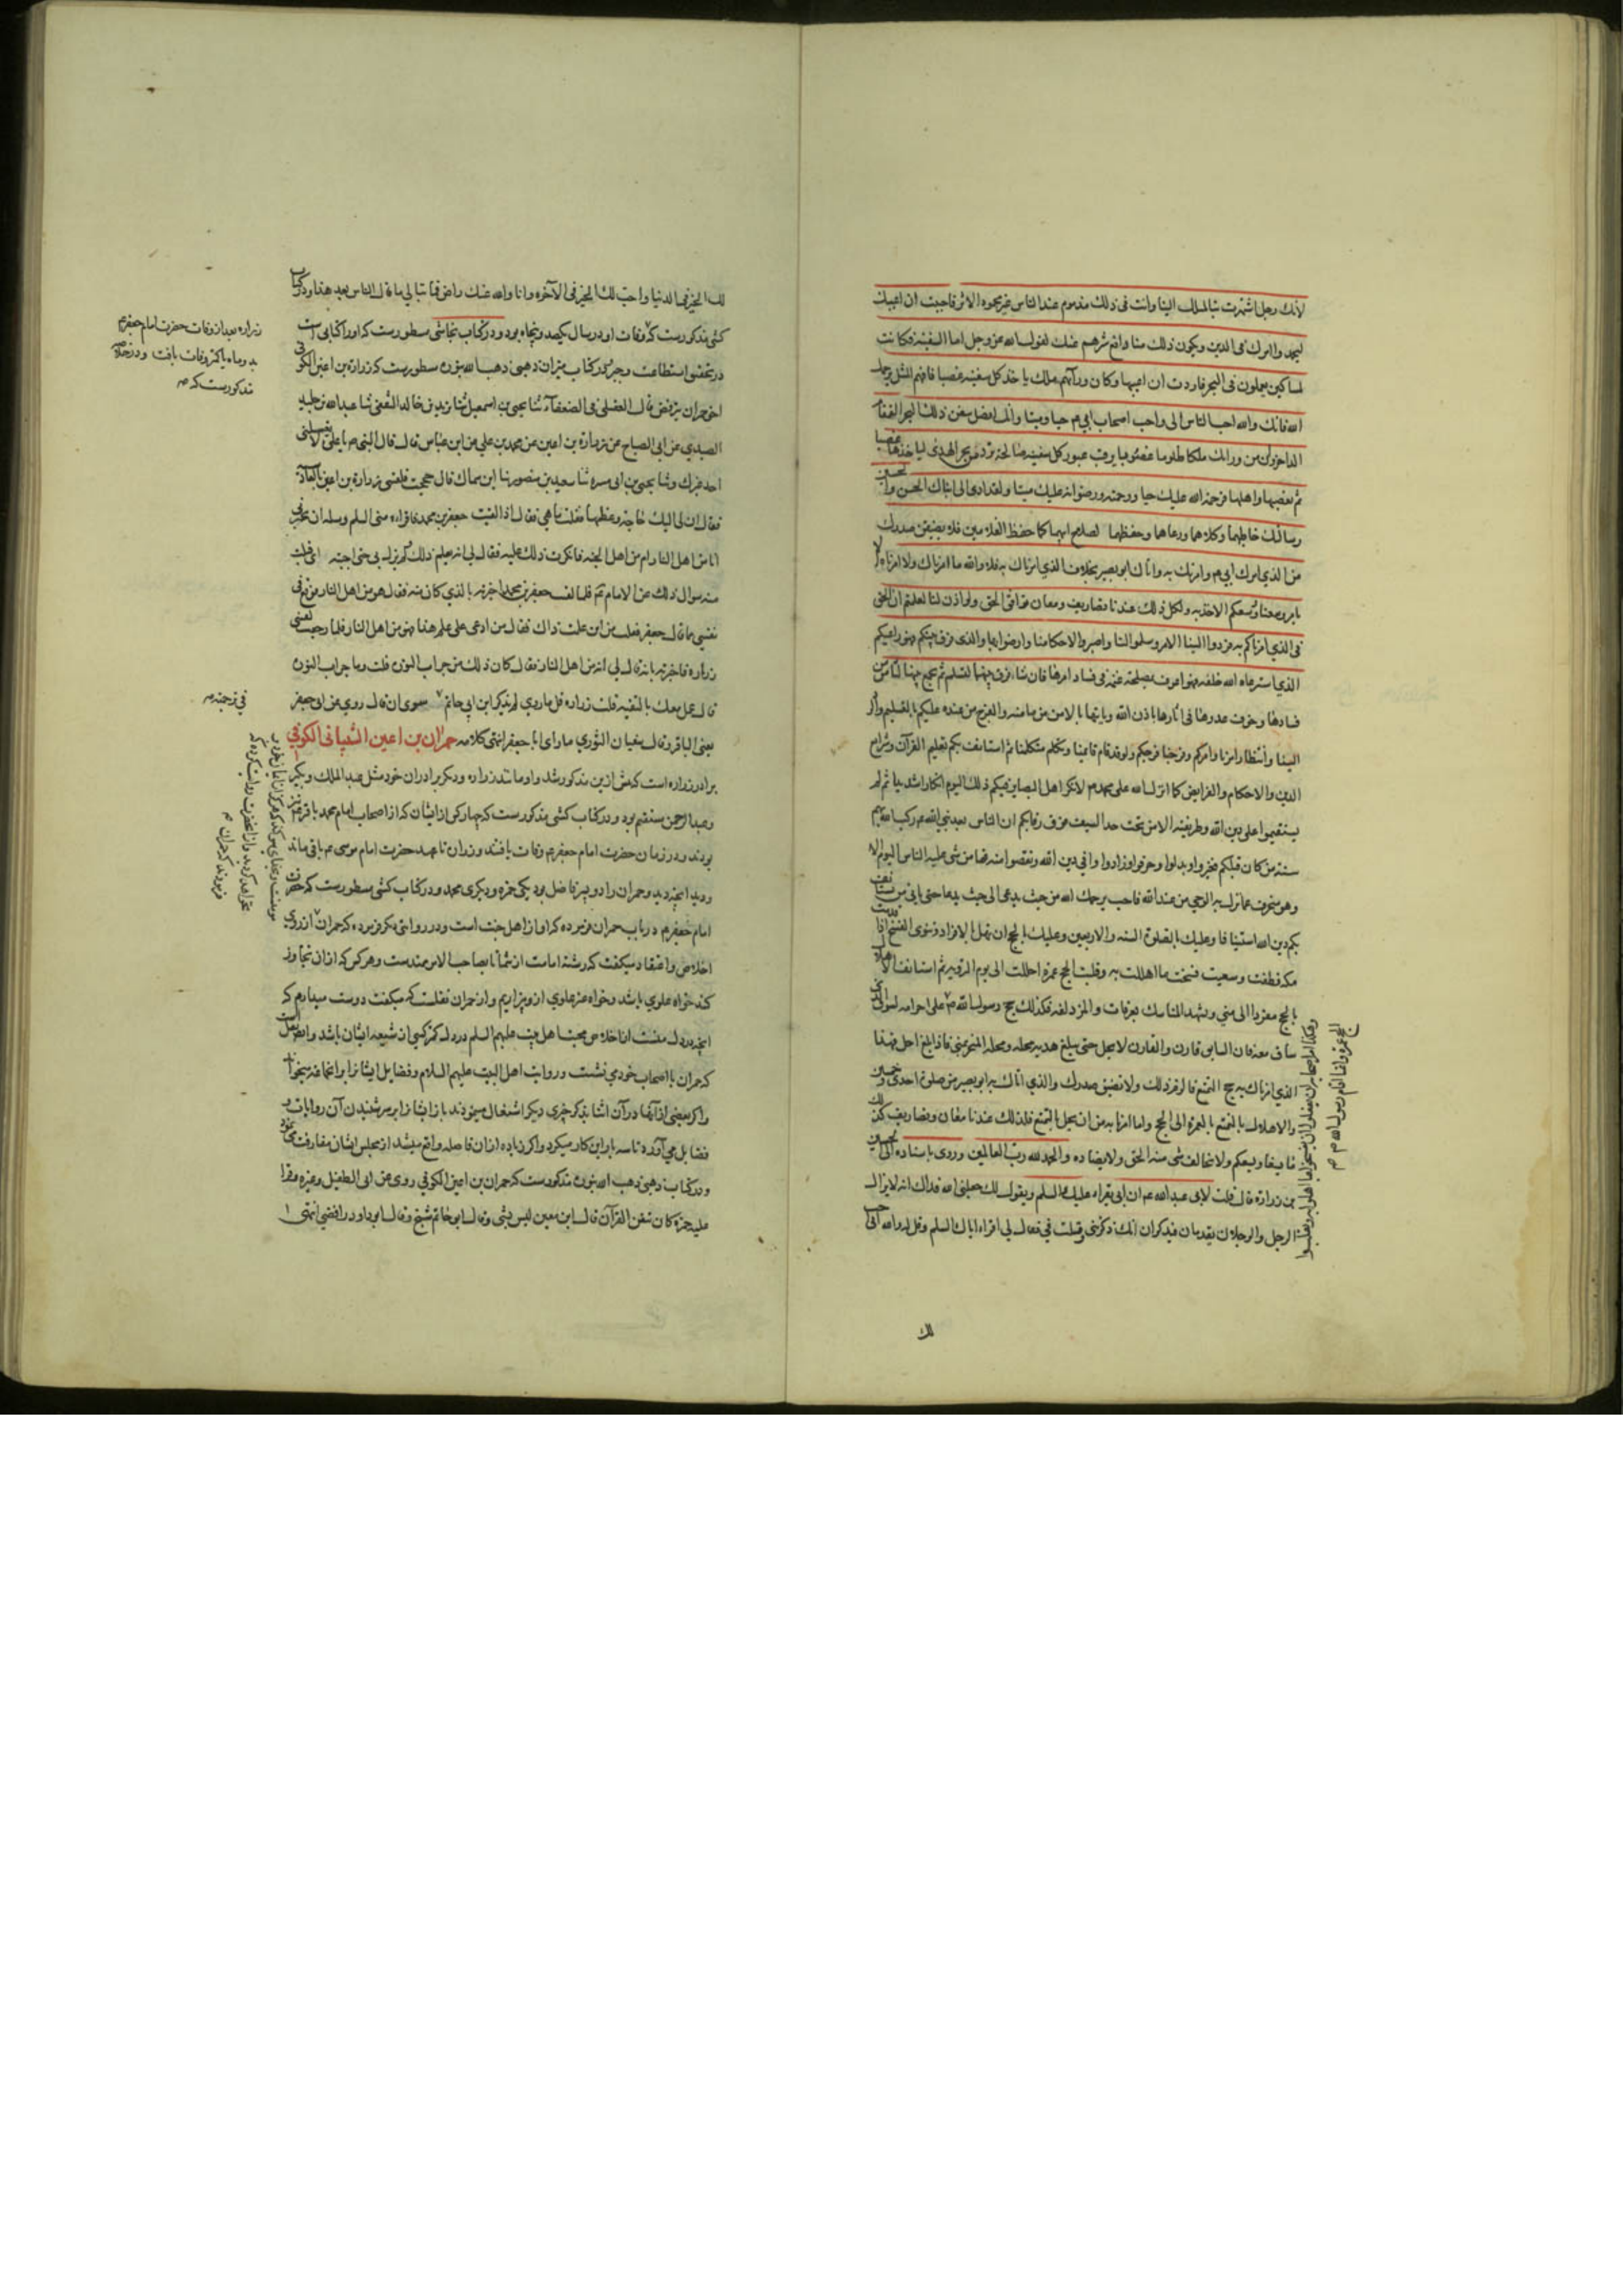 لأنك رجل اشتهرت بنا لميلك الينا وانت فى ذلك مذموم عند الناس غير محمود الاثر فاحببت ان اعيبك
ليحمدوا امرك فى الدين ويكون ذلك منا دافع شرهم عنك لقول الله عز وجل اما السفينة فكانت
لمساكين يعملون فى البحر فاردت ان اعيبها وكان ورآئهم ملك ياخذ كل سفينة غصبا فافهم المثل يرحمك
الله فانك والله احب الناس الى واحب اصحاب ابى م حيا وميتا وانك افضل سفن ذلك البحر القمقام
الزاخر وان من ورائك ملكا ظلوما غصوبا يرقب عبور كل سفينة صالحة ترد من بحر الهدى لياخذها غصبا
ثم يغصبها واهلها فرحمة الله عليك حيا ورحمته ورضوانه عليك ميتا ولقد ادى الى ابناك الحسن والحسين
رسالتك حاطهما وكلاهما ورعاهما وحفظهما لصلاح ابيهما كما حفظ الغلامين فلا يضيقن صدرك
من الذي امرك ابي م وامرتك به واتاك ابو بصير بخلاف الذي امرناك به فلا والله ما امرناك ولا امرناه الا
بامر وسعنا ووسعكم الاخذ به ولكل ذلك عندنا تصاريف ومعان توافق الحق ولو اذن لنا لعلمتم ان الحق
فى الذي امرناكم به فردوا الينا الامر وسلموا لنا واصبروا لاحكامنا وارضوا بها والذى فرق بينكم فهو راعيكم
الذي استرعاه الله خلقه فهو اعرف بمصلحة غنمه فى فساد امرها فان شاء فرق بينها لتسلم ثم يجمع بينها لتأمن من
فسادها وخوف عدوها فى آثار ما ياذن الله وياتيها بالامن من مأمنه والفرج من عنده عليكم بالتسليم والرد
الينا وانتظار امرنا وامركم وفرجنا وفرجكم ولو قد قام قائمنا وتكلم متكلمنا ثم استانف بكم تعليم القرآن وشرايع
الدين والاحكام والفرايض كما انزل الله على محمد م لانكر اهل البصاير فيكم ذلك اليوم انكارا شديدا ثم لم
يستقيموا على دين الله وطريقته الا من تحت حد السيف فوق رقابكم ان الناس بعد نبي الله م ركب الله بهم
سنة من كان قبلكم فغيروا وبدلوا وحرفوا وزادوا فى دين الله ونقصوا منه فما من شى عليه الناس اليوم الا
وهو منحرف عما نزل به الوحي من عند الله فاجب يرحمك الله من حيث تدعى الى حيث تدعا حتى ياتى من يستأنف
بكم دين الله استينافا وعليك بالصلوة الستة والاربعين وعليك بالحج ان تهل بالافراد وتنوى الفسخ اذا قدمت
مكة وطفت وسعيت فسخت ما اهللت به وقلبت الحج عمرة احللت الى يوم التروية ثم استانف الاهلال
بالحج مفردا الى منى وتشهد المناسك بعرفات والمزدلفة فكذلك حج رسول الله ص
وهكذا امر اصحابه ان يفعلوا ان يفسخوا ما اهلوا به ويقلبوا
الحج عمرة وانما اقام رسول الله م
على احرامه لسوق الذى
ساق معه فان السايق قارن والقارن لا يحل حتى يبلغ هديه محله ومحله المنحر بمنى فاذا بلغ احل فهذا
الذي امرناك به حج التمتع فالزم ذلك ولا تضيقن صدرك والذي اتاك به ابو بصير من صلوة احدى وخمسين
والاهلال بالتمتع بالعمرة الى الحج وما امرنا به من ان يهل بالتمتع فلذلك عندنا معان وتصاريف كذلك
ما يسعنا ويسعكم ولا يخالف شى منه الحق ولا يضاده والحمد لله رب العالمين وروى باسناده الى الحسين
بن زرارة قال قلت لابى عبد الله م ان ابى يقراء عليك السلم ويقول لك جعلنى الله فداك انه لا يزال
الرجل والرجلان يقدمان فيذكران انك ذكرتنى وقلت في فقال لى اقراء اباك السلم وقل له انا والله احب
لك
لك الخير فى الدنيا واحب لك الخير فى الآخرة وانا والله عنك راض فما تبالي ما قال الناس بعد هذا ودر كتاب
كشى مذكورست كه وفات او در سال يكصد وپنجاه بود ودر كتاب نجاشى مسطورست كه او را كتابى است
در تحقيق استطاعت وجبر ودر كتاب ميزان ذهبى ذهب الله بنوره مسطورست كه زرارة بن اعين الكوفى
اخى حمران يترفض قال العقيلى فى الضعفآء ثنا يحيى بن اسمعيل ثنا يزيد بن خالد الثقفى ثنا عبد الله بن خليد
الصيدى عن ابى الصباح عن زرارة بن اعين عن محمد بن علي عن ابن عباس قال قال النبى م يا على لا يغسلنى
احد غيرك وثنا يحيى بن ابى مسره ثنا سعيد بن منصور ثنا ابن سماك قال حججت فلقينى زرارة بن اعين بالقادسية
فقال ان لى اليك حاجة وعظمها فقلت ما هى فقال اذا لقيت جعفر بن محمد فاقراءه منى السلم وسله ان يخبرنى
انا من اهل النار ام من اهل الجنة فانكرت ذلك عليه فقال لى انه يعلم ذلك ولم يزل بى حتى اجبته
نفسى ما قال جعفر فقلت من اين علمت ذاك فقال من ادعى على علم هذا فهو من اهل النار فلما رجعت لقينى
زرارة فاخبرته بانه قال لي انه من اهل النار فقال كان ذلك من جراب النوره قلت وما جراب النورة
قال عمل معك بالتقية قلت زراره قل ما روى لم يذكر ابن ابى حاتم في ترجمته سوى ان قال روى عن ابى جعفر
يعنى الباقر وقال سفيان الثوري ما راى ابا جعفر انتهى كلامه حمران بن اعين الشيبانى الكوفي
برادر زراره است كه پيش ازين مذكور شد واو مانند زراره وديگر برادران خود مثل عبد الملك وبكير
وعبد الرحمن مستقيم بود ودر كتاب كشى مذكورست كه چهار كس از ايشان كه از اصحاب امام محمد باقر م نيز
بودند ودر زمان حضرت امام جعفر م وفات يافتند وزراره تا عهد حضرت امام موسى م باقى ماند
وديد آنچه ديد وحمران را دو پسر فاضل بود يكى حمزه وديگرى محمد ودر كتاب كشى مسطورست كه حضرت
امام جعفر م در باب حمران فرموده كه او از اهل جنت است ودر روايتى ديگر فرموده كه حمران از روى
اخلاص واعتقاد ميگفت كه رشته امامت از شما تا بصاحب الامر ممتدست وهر كس كه از ان تجاوز
كند خواه علوي باشد وخواه غير علوي از او بيزاريم واز حمران نقلست كه ميگفت دوست ميدارم كه
كه حمران با اصحاب خود مي نشست وروايت اهل البيت عليهم السلام وفضايل ايشانرا بر
واگر بعضى از آنها در آن اثنا بذكر چيزى ديگر اشتغال مينمودند باز ايشانرا بر سر شنيدن آن روايات و
فضايل مى آورد تا سه بار اين كار ميكرد واگر زياده از ان فاصله واقع ميشد از مجلس ايشان مفارقت مينمود
ودر كتاب ذهبى ذهب الله بنوره مذكورست كه حمران بن اعين الكوفي روى عن ابى الطفيل وغيره وقرا
عليه حمزة كان يتقن القرآن قال ابن معين ليس بشى وقال ابو حاتم شيخ وقال ابو داود رافضى انتهى
زراره بعد از وفات حضرت امام جعفر م
بدو ماه يا كمتر وفات يافت ودر خلاصه
مذكورست كه